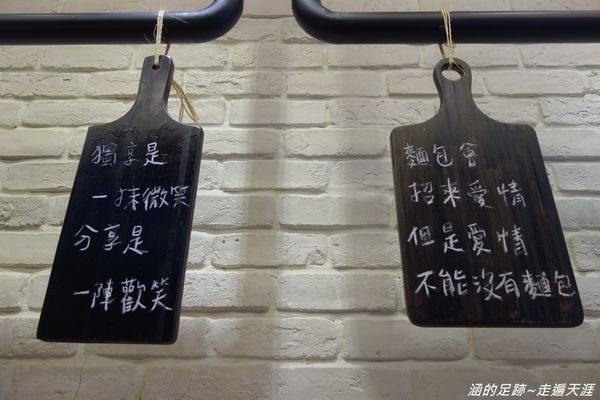 獨享是
一抹微笑
分享是
一陣歡笑
麵包會
招來愛情
但是愛情
不能沒有麵包
涵的足跡~走遍天涯